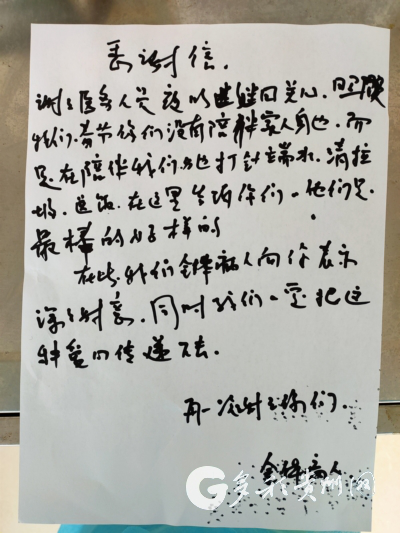 表谢信.
谢谢医务人员护以无微回关心.日照顾
我们.春节你们没有陪伴家人身边.而
是在陪伴我们也打针端水.清垃
圾.送饭.在这里告诉你们.他们是
最棒的好样的
在此我们全体病人向你表示
深深谢意.同时我们一定把这
种爱心传递下去.
再一次谢谢你们.
全体病人
多彩贵州网